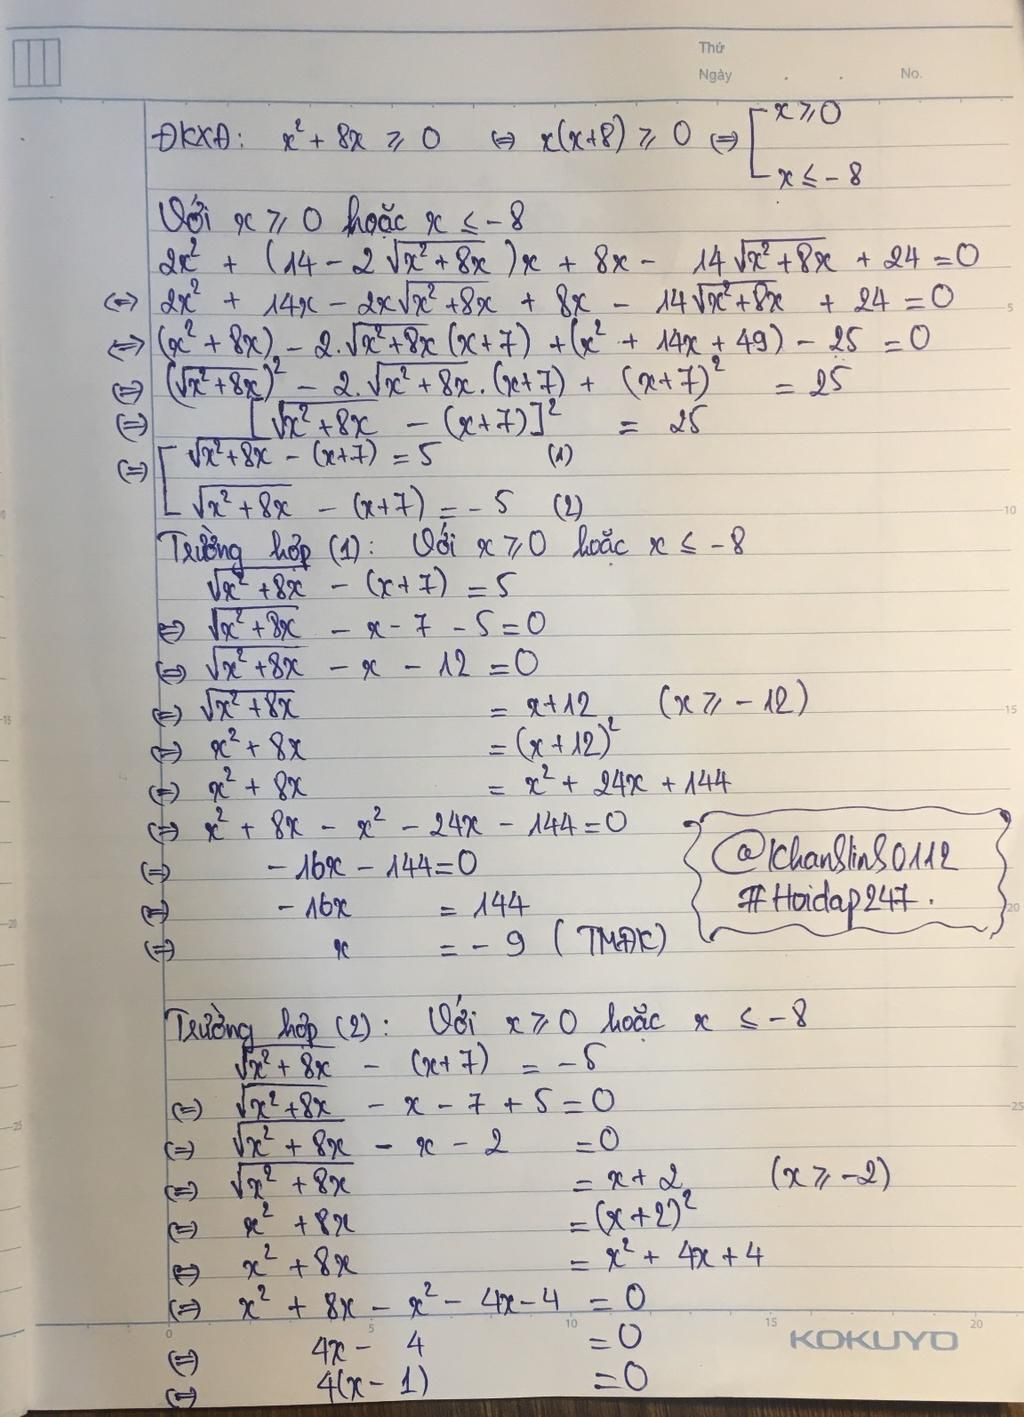 Thứ
Ngày . . No.
ĐKXĐ: x² + 8x ⩾ 0 ⇔ x(x+8) ⩾ 0 ⇔ [ x ⩾ 0
x ≤ -8
Với x ⩾ 0 hoặc x ≤ -8
2x² + (14 - 2√(x²+8x))x + 8x - 14√(x²+8x) + 24 = 0
⇔ 2x² + 14x - 2x√(x²+8x) + 8x - 14√(x²+8x) + 24 = 0
⇔ (x² + 8x) - 2.√(x²+8x)(x+7) + (x² + 14x + 49) - 25 = 0
⇔ (√(x²+8x))² - 2.√(x²+8x).(x+7) + (x+7)² = 25
⇔ [√(x²+8x) - (x+7)]² = 25
⇔ [ √(x²+8x) - (x+7) = 5 (1)
√(x²+8x) - (x+7) = -5 (2)
Trường hợp (1): Với x ⩾ 0 hoặc x ≤ -8
√(x²+8x) - (x+7) = 5
⇔ √(x²+8x) - x - 7 - 5 = 0
⇔ √(x²+8x) - x - 12 = 0
⇔ √(x²+8x) = x+12 (x ⩾ -12)
⇔ x² + 8x = (x+12)²
⇔ x² + 8x = x² + 24x + 144
⇔ x² + 8x - x² - 24x - 144 = 0
⇔ -16x - 144 = 0
⇔ -16x = 144
⇔ x = -9 (TMĐK)
@KhanSlinS0112
#Hoidap247.
Trường hợp (2): Với x ⩾ 0 hoặc x ≤ -8
√(x²+8x) - (x+7) = -5
⇔ √(x²+8x) - x - 7 + 5 = 0
⇔ √(x²+8x) - x - 2 = 0
⇔ √(x²+8x) = x+2 (x ⩾ -2)
⇔ x² + 8x = (x+2)²
⇔ x² + 8x = x² + 4x + 4
⇔ x² + 8x - x² - 4x - 4 = 0
⇔ 4x - 4 = 0
⇔ 4(x - 1) = 0
0 5 10 15 20
KOKUYO